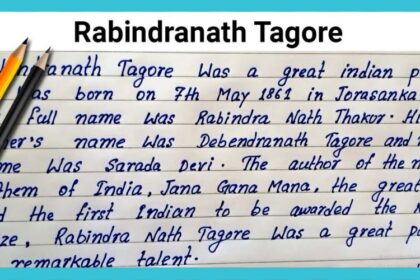 Rabindranath Tagore
anath Tagore Was a great indian p
as born on 7th May 1861 in Jorasanka
full name was Rabindra Nath Thakor. Hi
er's name was Debendranath Tagore and
me Was Sarada Devi. The author of the n
them of India, Jana Gana Mana, the great
d the first Indian to be awarded the N
ze, Rabindra Nath Tagore was a great po
remarkable talent.